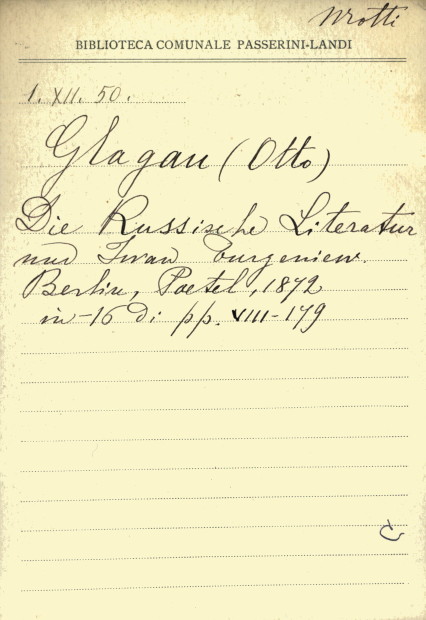 Wrotti
BIBLIOTECA COMUNALE PASSERINI-LANDI
1. XII. 50.
Glagau (Otto)
Die Russische Literatur
und Iwan Turgeniew.
Berlin, Paetel, 1872
in-16 di pp. VIII-179
C